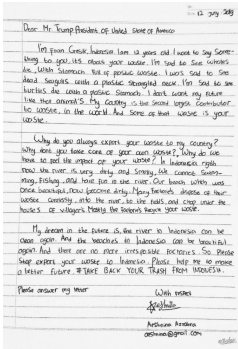 12 July 2019
Dear Mr. Trump President of United State of America
I'm from Gresik, Indonesia. I am 12 years old. I want to say some-
thing to you. It's about your waste. I'm sad to see whales
die with stomach full of plastic waste. I was sad to see
dead seagulls with a plastic strangled neck. I'm sad to see
turtles die with a plastic stomach. I don't want my future
like that animal's. My country is the second largest contributor
to waste, in the world. And some of that waste is your
waste.
Why do you always export your waste to my country?
Why don't you take care of your own waste? Why do we
have to feel the impact of your waste? In Indonesia right
now the river is very dirty and smelly, we cannot swim-
ming, fishing, and have fun in the river. Our beach which was
once beautiful, now become dirty. Many factories dispose of their
waste carelessly, into the river, to the fields, and also under the
houses of villagers. Mostly the factories recycle your waste.
My dream in the future is, the river in Indonesia can be
clean again. And the beaches in Indonesia can be beautiful
again. And there are no more irresponsible factories. So, Please
stop export your waste to Indonesia. Please help me to make
a better future. # TAKE BACK YOUR TRASH FROM INDONESIA.
Please answer my letter
With respect
Aeshnina Azzahra